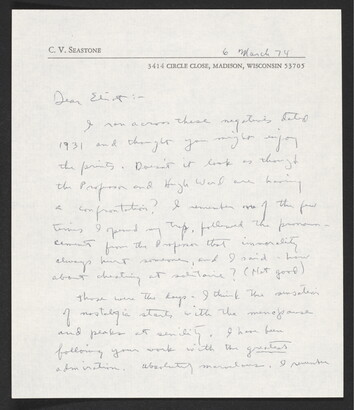 C. V. SEASTONE
6 March 74
3414 CIRCLE CLOSE, MADISON, WISCONSIN 53705
Dear Eliot:-
I ran across these negatives dated
1931 and thought you might enjoy
the prints. Doesn't it look as though
the Professor and Hugh are having
a confrontation? I remember one of the few
times I opened my trap, followed the pronoun-
cement from the Professor that immorality
always hurt someone, and I said - how
about cheating at solitaire? (Not good)
Those were the days. I think the sensation
of nostalgia starts with the menopause
and peaks at senility. I have been
following your work with the greatest
admiration. Absolutely marvelous. I remember